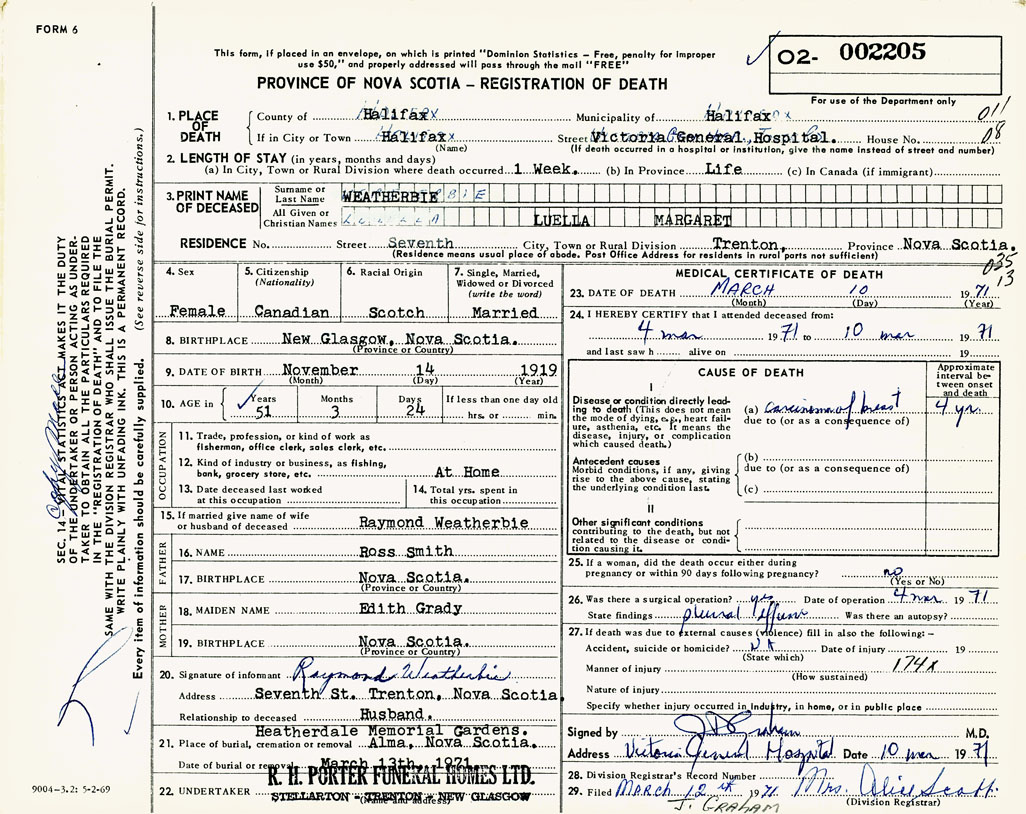 FORM 6
This form, if placed in an envelope, on which is printed "Dominion Statistics – Free, penalty for improper
use $50," and properly addressed will pass through the mail "FREE"
O2- 002205
PROVINCE OF NOVA SCOTIA – REGISTRATION OF DEATH
For use of the Department only
1. PLACE OF DEATH
County of Halifax Municipality of Halifax 011
If in City or Town Halifax Street Victoria General Hospital. House No. 08
(Name) (If death occurred in a hospital or institution, give the name instead of street and number)
2. LENGTH OF STAY (in years, months and days)
(a) In City, Town or Rural Division where death occurred 1 Week. (b) In Province Life (c) In Canada (if immigrant)
3. PRINT NAME OF DECEASED
Surname or Last Name WEATHERBIE
All Given or Christian Names LUELLA MARGARET
RESIDENCE No. Street Seventh City, Town or Rural Division Trenton, Province Nova Scotia.
(Residence means usual place of abode. Post Office Address for residents in rural parts not sufficient)
035
13
4. Sex
Female
5. Citizenship
(Nationality)
Canadian
6. Racial Origin
Scotch
7. Single, Married,
Widowed or Divorced
(write the word)
Married
8. BIRTHPLACE New Glasgow, Nova Scotia.
(Province or Country)
9. DATE OF BIRTH November 14 1919
(Month) (Day) (Year)
10. AGE in Years Months Days If less than one day old
51 3 24 hrs. or min.
OCCUPATION
11. Trade, profession, or kind of work as
fisherman, office clerk, sales clerk, etc.
12. Kind of industry or business, as fishing,
bank, grocery store, etc. At Home
13. Date deceased last worked
at this occupation
14. Total yrs. spent in
this occupation
15. If married give name of wife
or husband of deceased Raymond Weatherbie
FATHER
16. NAME Ross Smith
17. BIRTHPLACE Nova Scotia.
(Province or Country)
MOTHER
18. MAIDEN NAME Edith Grady
19. BIRTHPLACE Nova Scotia.
(Province or Country)
20. Signature of informant Raymond Weatherbie
Address Seventh St. Trenton, Nova Scotia
Relationship to deceased Husband.
Heatherdale Memorial Gardens.
21. Place of burial, cremation or removal Alma, Nova Scotia.
Date of burial or removal March 13th, 1971
R. H. PORTER FUNERAL HOMES LTD.
22. UNDERTAKER STELLARTON - TRENTON - NEW GLASGOW
(Name and address)
MEDICAL CERTIFICATE OF DEATH
23. DATE OF DEATH MARCH 10 1971
(Month) (Day) (Year)
24. I HEREBY CERTIFY that I attended deceased from:
4 mar 1971 to 10 mar 1971
and last saw h alive on 19
CAUSE OF DEATH
Approximate interval between onset and death
I
Disease or condition directly leading
to death (This does not mean
the mode of dying, e.g., heart failure,
asthenia, etc. It means the
disease, injury, or complication
which caused death.)
(a) carcinoma of breast 4 yr.
due to (or as a consequence of)
Antecedent causes
Morbid conditions, if any, giving
rise to the above cause, stating
the underlying condition last.
(b)
due to (or as a consequence of)
(c)
II
Other significant conditions
contributing to the death, but not
related to the disease or condition
causing it.
25. If a woman, did the death occur either during
pregnancy or within 90 days following pregnancy? no
(Yes or No)
26. Was there a surgical operation? yes Date of operation 4 mar 1971
State findings pleural effusion Was there an autopsy?
27. If death was due to external causes (violence) fill in also the following: –
Accident, suicide or homicide? NA Date of injury 19
(State which)
Manner of injury 174X
(How sustained)
Nature of injury
Specify whether injury occurred in industry, in home, or in public place
Signed by J D Graham M.D.
Address Victoria General Hospital Date 10 mar 1971
28. Division Registrar's Record Number
29. Filed MARCH 12th 1971 Mrs. Alice Scott
(Division Registrar)
J. GRAHAM
SEC. 14 – VITAL STATISTICS ACT MAKES IT THE DUTY
OF THE UNDERTAKER OR PERSON ACTING AS UNDERTAKER
TO OBTAIN ALL THE PARTICULARS REQUIRED
IN THE "REGISTRATION OF DEATH" AND TO FILE THE
SAME WITH THE DIVISION REGISTRAR WHO SHALL ISSUE THE BURIAL PERMIT.
WRITE PLAINLY WITH UNFADING INK. THIS IS A PERMANENT RECORD.
Every item of information should be carefully supplied. (See reverse side for instructions.)
9004-3.2: 5-2-69